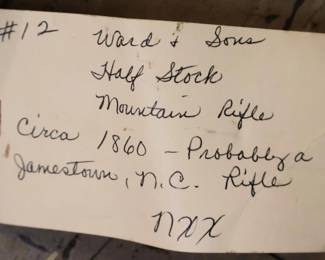 #12 Ward & Sons
Half Stock
Mountain Rifle
Circa 1860 - Probably a
Jamestown, N.C. Rifle
NXX